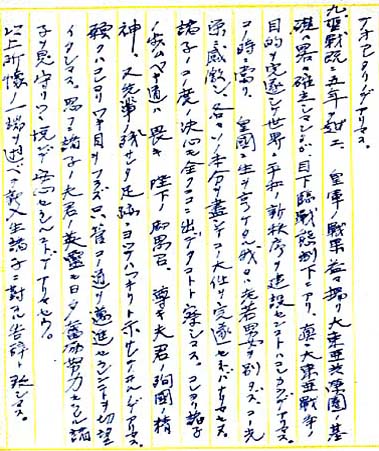 デオ□□リデアリマス。
聖戦既ニ五年ヲ越エ、皇軍ノ戦果益々揚リ大東亜共栄圏ノ基
礎略確立シマシタガ、目下臨戦態制下ニアリ、真ニ大東亜戦争ノ
目的ヲ完遂シ世界ノ平和ノ新秩序ヲ建設セントハコレカラデアリマス。
コノ時ニ當リ、皇國ニ生ヲ享ケタル我々老若男女ヲ別タズ、コノ光
栄ニ感激シ、各々ソノ本分ヲ盡シコノ大任ヲ完遂セネバナリマセヌ。
諸子ノコノ度ノ決心モ全クココニ出デタコトト察シマス。コレヨリ諸子
ノ歩ムベキ道ハ畏キ陛下ノ御思召、尊キ夫君ノ殉國ノ精
神、又先輩ノ残セル足跡ニヨツテハツキリト示サレテヰルノデアリマス。
願クハコレヨリワキ目モフラズ只管コノ道ヲ邁進セラレンコトヲ切望
イタシマス。思フニ諸子ノ夫君ノ英霊モ日夕奮励努力セラルル諸
子ヲ見守リツツ悦ンデ安心セラルルコトデアリマセウ。
以上所懐ノ一端ヲ述ベテ新入生諸子ニ對スル告辞ト致シマス。